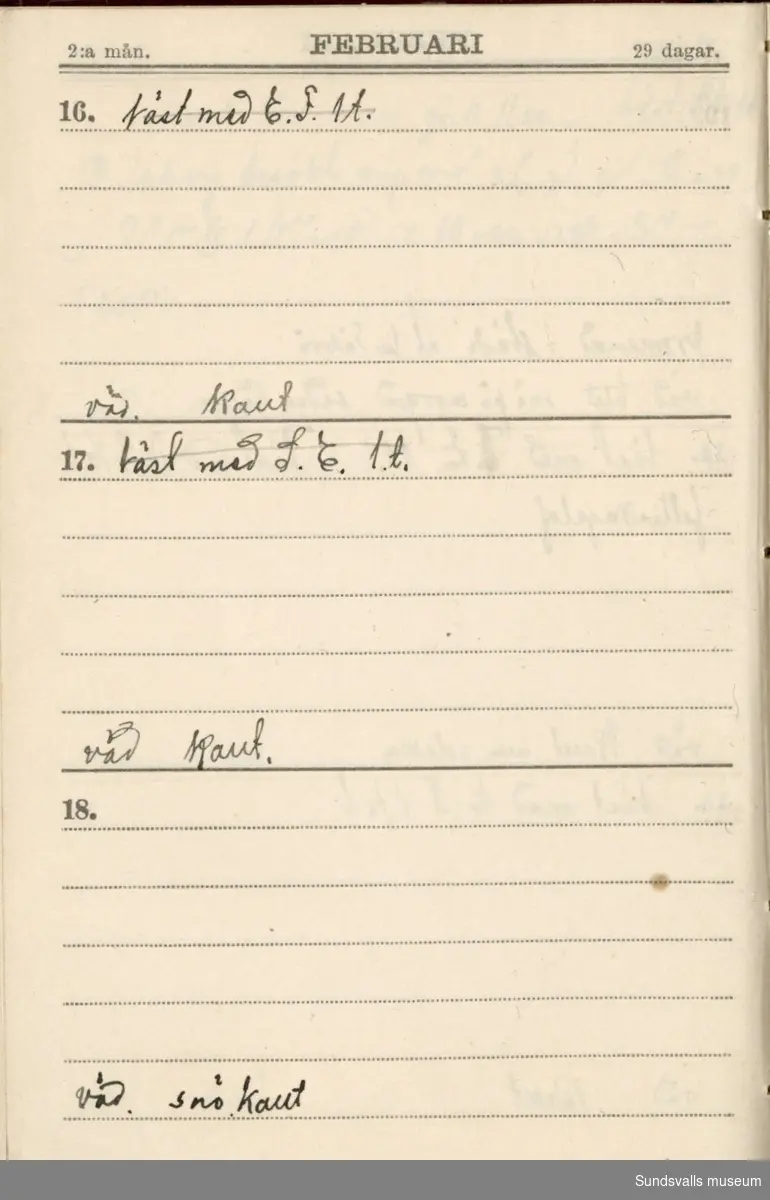 2:a mån.
FEBRUARI
29 dagar.
16. täst med E. F. 1 t.
väd. kaut
17. täst med F. E. 1. t.
väd kaut.
18.
väd. snö. kaut
Sundsvalls museum